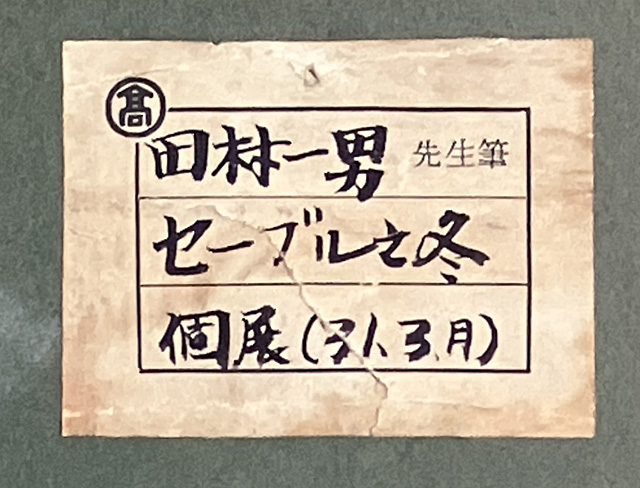 髙
田村一男 先生筆
セーブル之冬
個展(31.3.月)